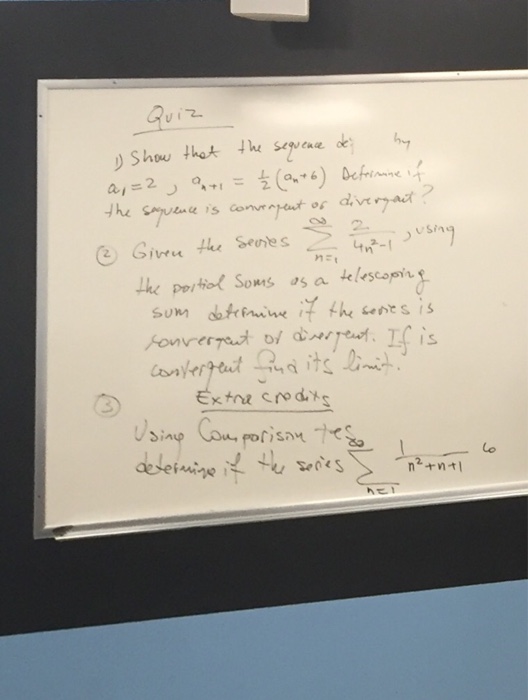 Quiz
1) Show that the sequence de by
a₁ = 2, aₙ₊₁ = ½(aₙ+6) Determine if
the sequence is convergent or divergent?
② Given the Series ∑_{n=1}^{∞} 2/(4n²-1), using
the partial Soms as a telescoping
sum determine if the series is
convergent or divergent. If is
convergent find its limit.
Extra credits
③ Using Comparison tes
determine if the series ∑_{n=1}^{∞} 1/(n²+n+1)